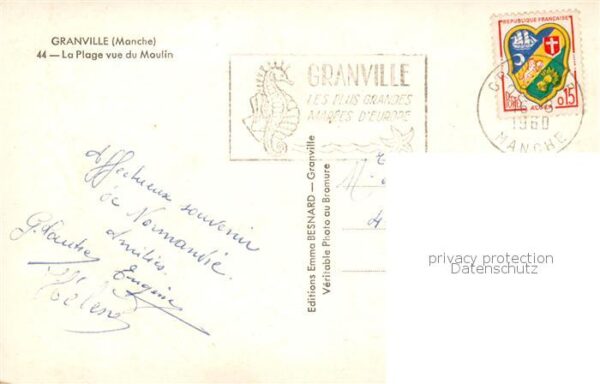 GRANVILLE (Manche)
44 — La Plage vue du Moulin
GRANVILLE
LES PLUS GRANDES
MARÉES D'EUROPE
REPUBLIQUE FRANÇAISE
ALGER
0,15
1960
MANCHE
Affectueux souvenir
de Normandie.
Amitiés.
Eugénie
Hélène
Editions Emma BESNARD — Granville
Véritable Photo au Bromure
privacy protection
Datenschutz